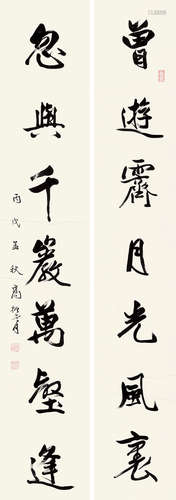 曾遊霽月光風裏
忽與千巖萬壑逢
丙戌孟秋